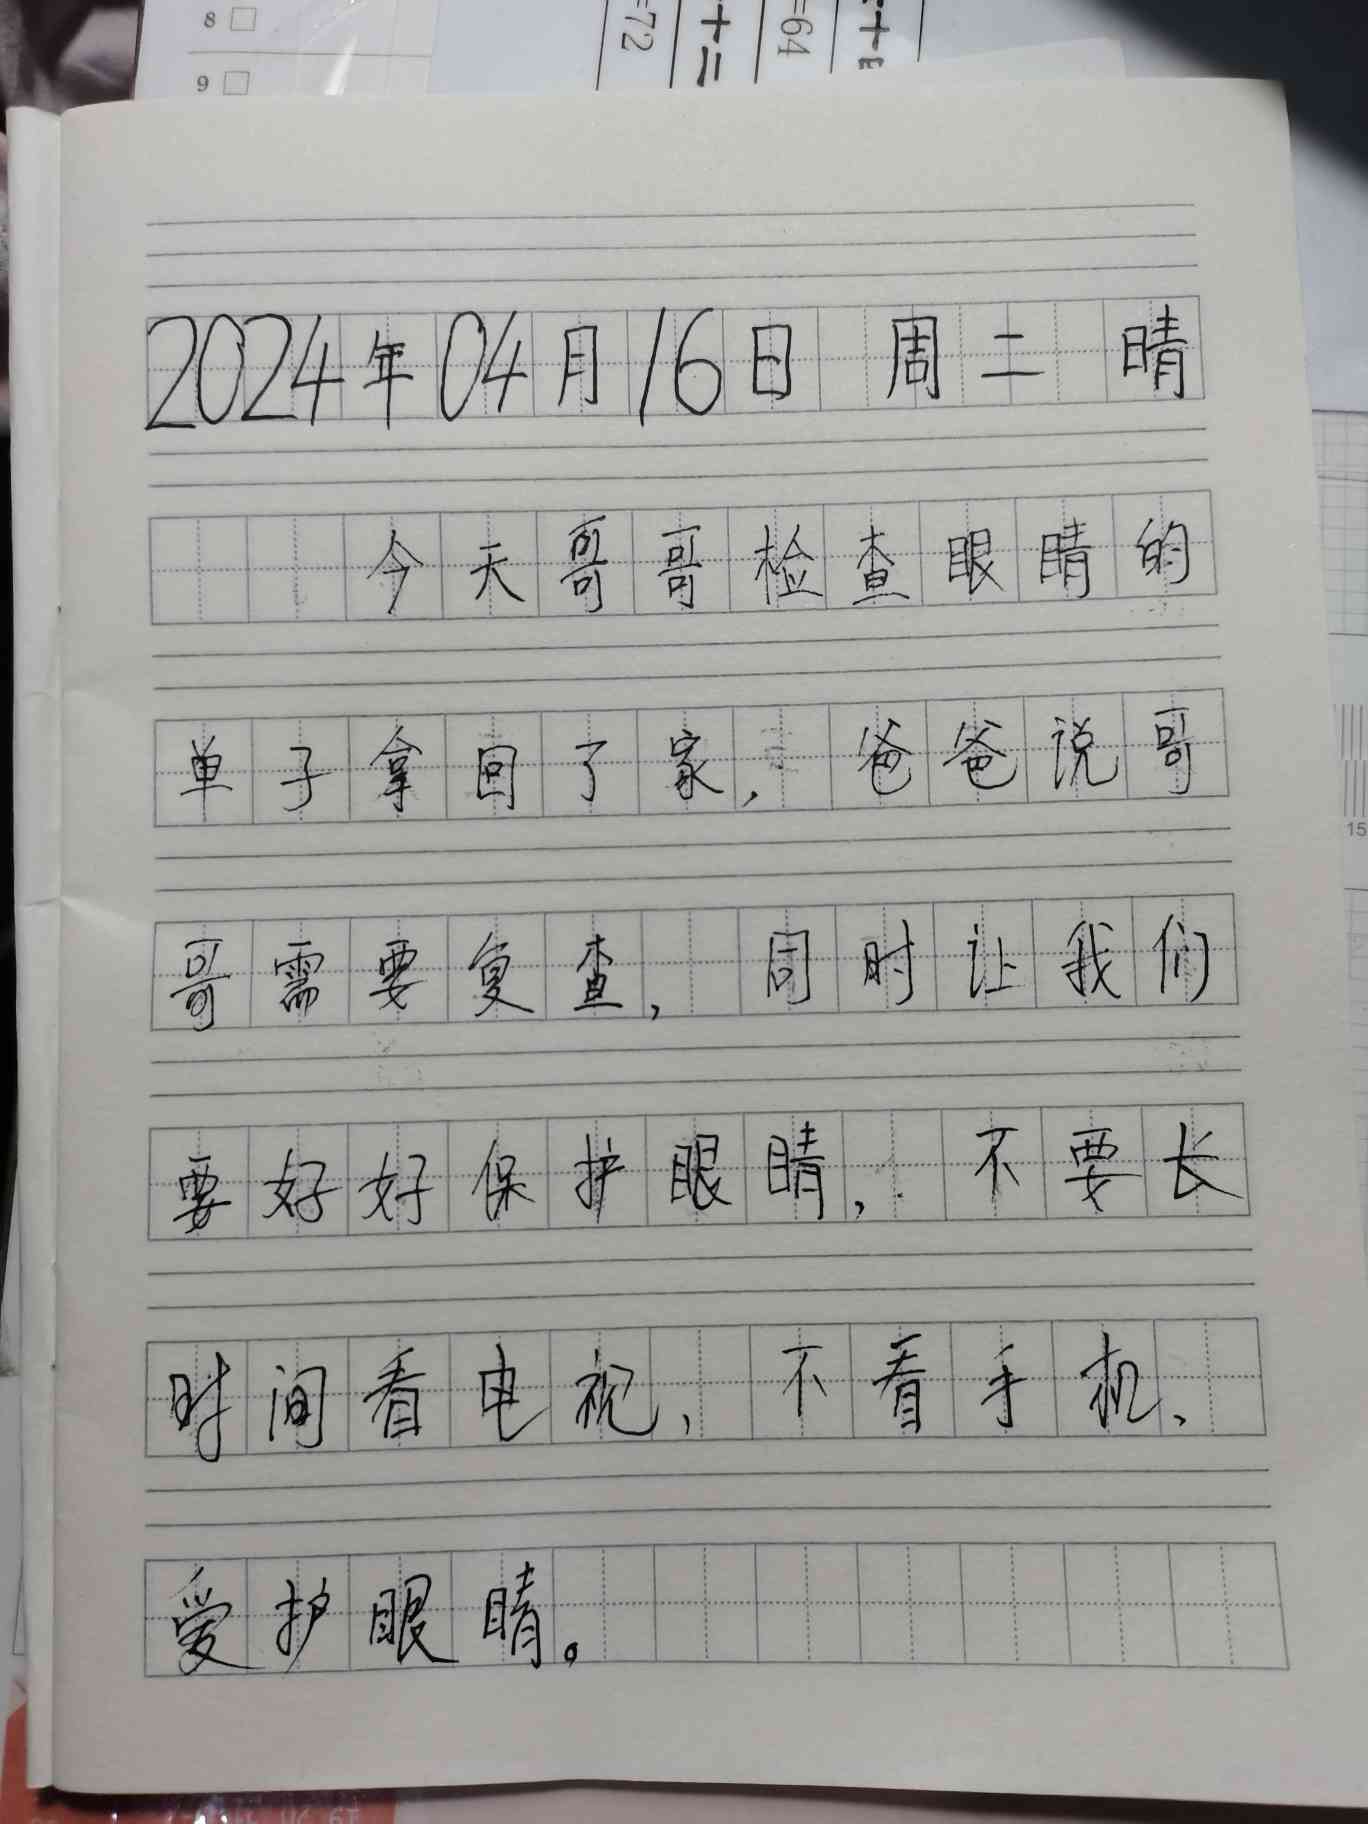 8 □
9 □
=72
十二
=64
2024年04月16日 周二 晴
今天哥哥检查眼睛的
单子拿回了家，爸爸说哥
哥需要复查，同时让我们
要好好保护眼睛，不要长
时间看电视，不看手机，
爱护眼睛。
15